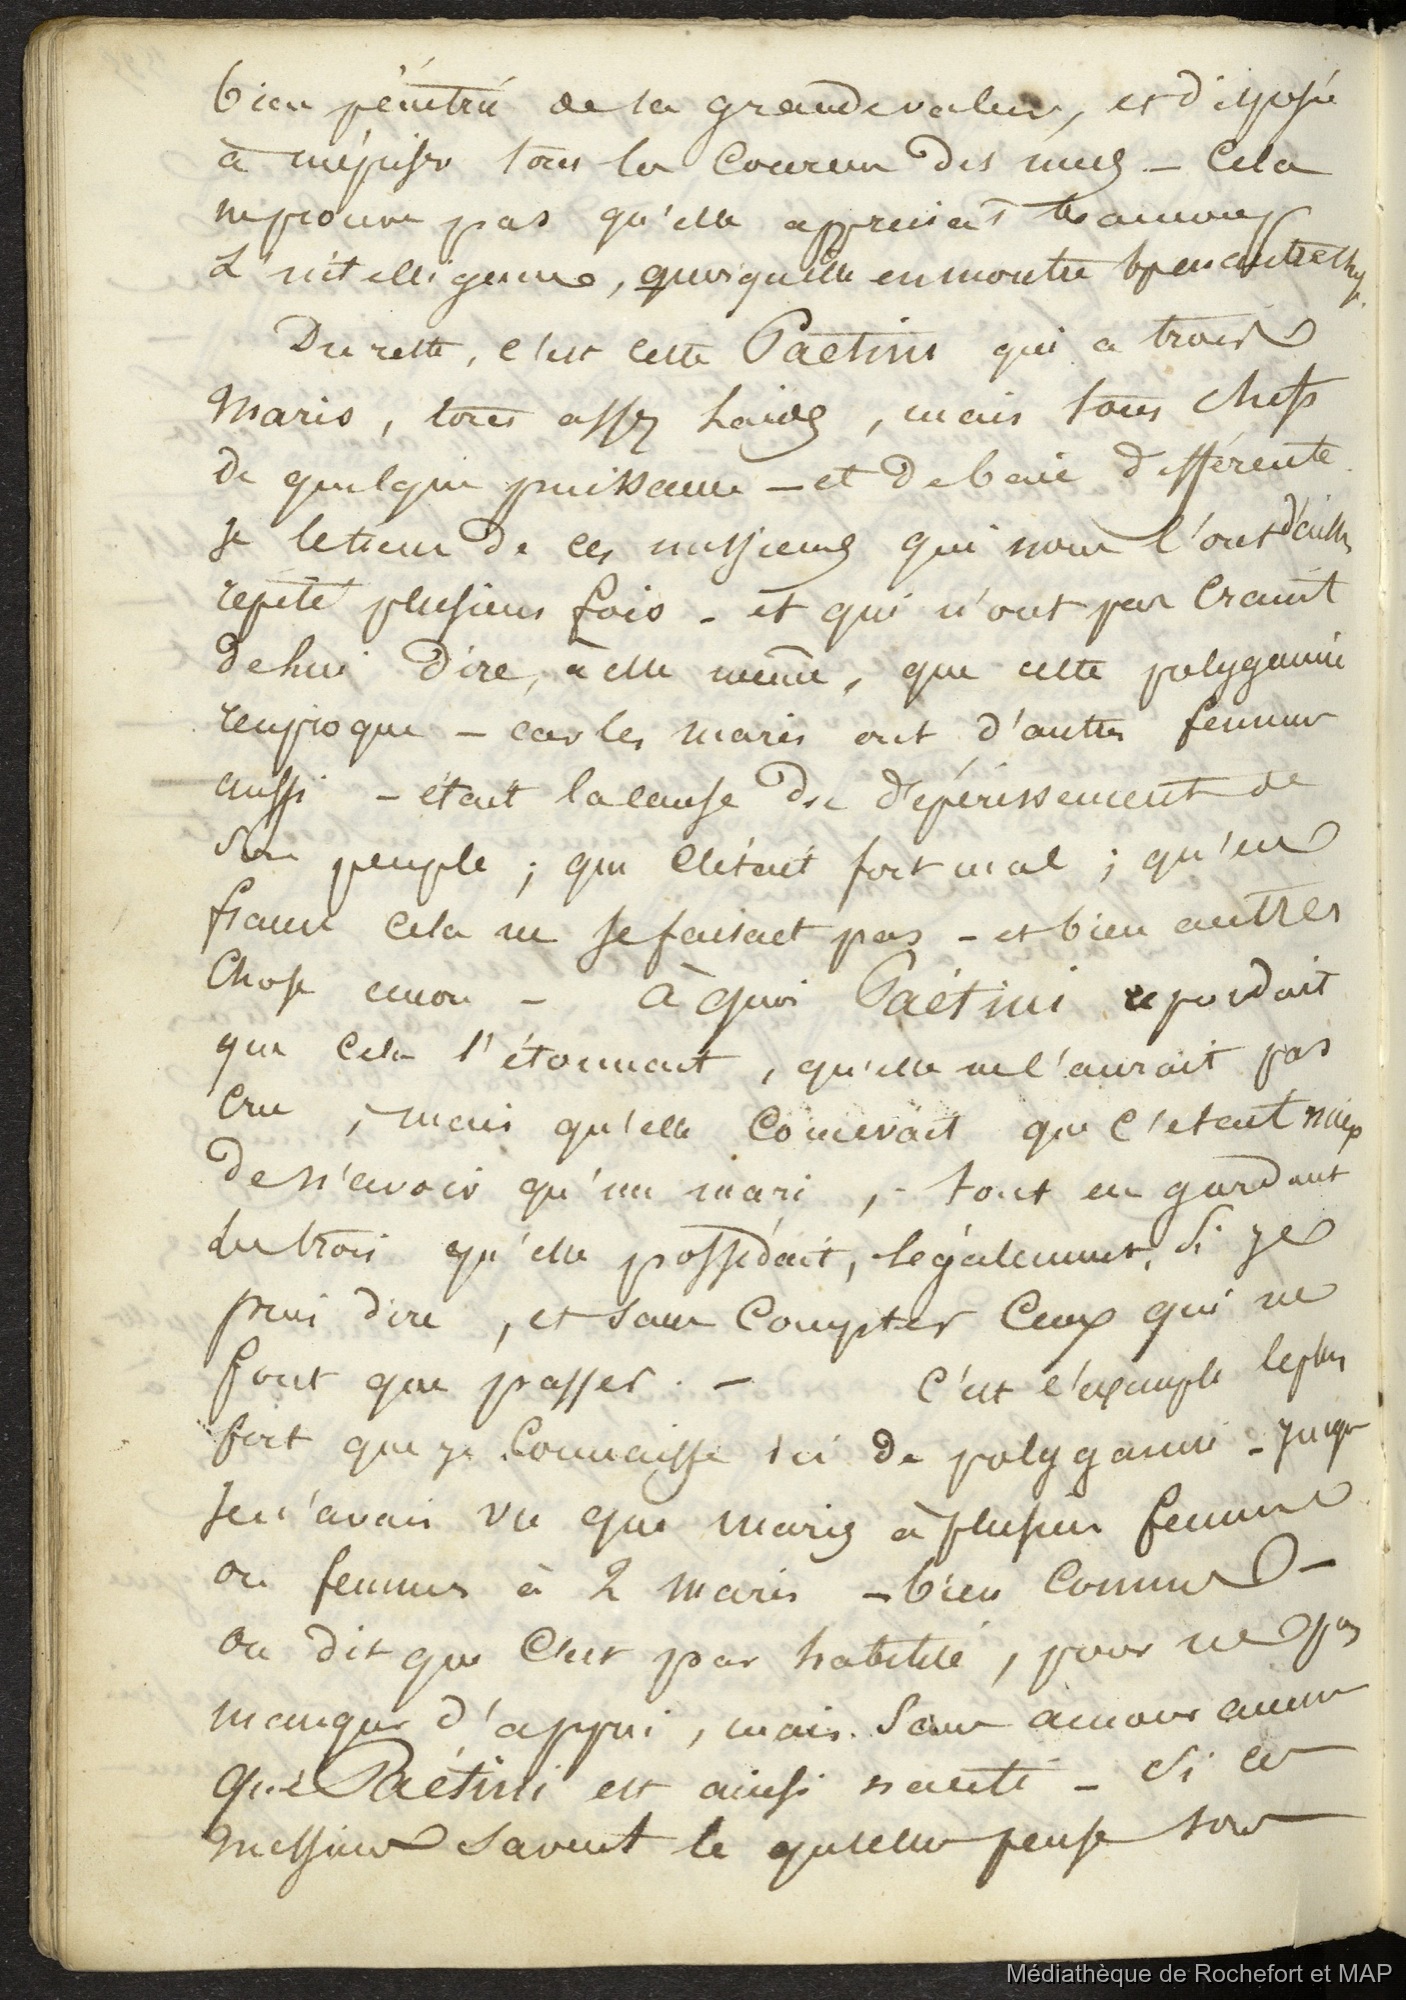 bien pénétré de sa grande valeur, et disposé
à mépriser tous les coureurs des mers - Cela
ne prouve pas qu'elle appréciat beaucoup
L'intelligence, quoiqu'elle en montre
Du reste, c'est cette Paétini qui a trois
Maris, tous assez laids, mais tous chefs
de quelque puissance - et de baie différente
Je le tiens de ces messieurs qui nous l'ont d'aills
repété plusieurs fois - et qui n'ont pas craint
de lui dire, à elle même, que cette polygamie
reciproque - car les maris ont d'autres femmes
aussi - était la cause du dépérissement de
Son peuple ; que c'était fort mal ; qu'en
france cela ne se faisait pas - et bien autres
Chose encore - à quoi Paétini repondait
que cela l'étonnait, qu'elle ne l'aurait pas
Cru, mais qu'elle concevait que c'etait mieux
de n'avoir qu'un mari, - tout en gardant
les trois qu'elle possédait, légalement, si je
puis dire, et sans compter ceux qui ne
font que passer. - C'est l'exemple le plus
fort que je connaisse ici de polygamie -
Je n'avais vu que maris à plusieurs femmes
ou femmes à 2 maris - bien connues -
On dit que c'est par habileté, pour ne pas
manquer d'appui, mais sans amour aucun
que Paétini est ainsi nantie - Si ces
Messieurs savent ce qu'elle pense sous